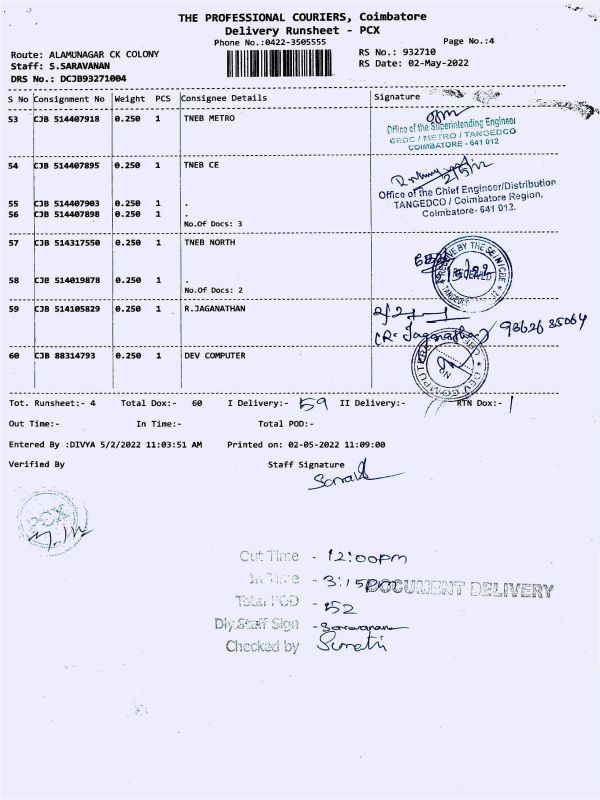 THE PROFESSIONAL COURIERS, Coimbatore
Delivery Runsheet - PCX
Phone No.:0422-3505555 Page No.:4
Route: ALAMUNAGAR CK COLONY RS No.: 932710
Staff: S.SARAVANAN RS Date: 02-May-2022
DRS No.: DCJB93271004
S No Consignment No Weight PCS Consignee Details Signature
53 CJB 514407918 0.250 1 TNEB METRO
Office of the Superintending Engineer
GEDC / METRO / TANGEDCO
COIMBATORE - 641 012
54 CJB 514407895 0.250 1 TNEB CE
Office of the Chief Engineer/Distribution
TANGEDCO / Coimbatore Region,
Coimbatore- 641 012.
55 CJB 514407903 0.250 1 .
56 CJB 514407898 0.250 1 .
No.Of Docs: 3
57 CJB 514317550 0.250 1 TNEB NORTH
58 CJB 514019878 0.250 1 .
No.Of Docs: 2
RECEIVED
59 CJB 514105829 0.250 1 R.JAGANATHAN
(R. Jaganathan)
60 CJB 88314793 0.250 1 DEV COMPUTER
DEV COMPUTER
Tot. Runsheet:- 4 Total Dox:- 60 I Delivery:- 59 II Delivery:- RTN Dox:- 1
Out Time:- In Time:- Total POD:-
Entered By :DIVYA 5/2/2022 11:03:51 AM Printed on: 02-05-2022 11:09:00
Verified By Staff Signature
PCX
Out Time - 12:00pm
In Time - 3:15pm DOCUMENT DELIVERY
Total POD - 52
Dly.Staff Sign - Saravanan
Checked by Sumathi